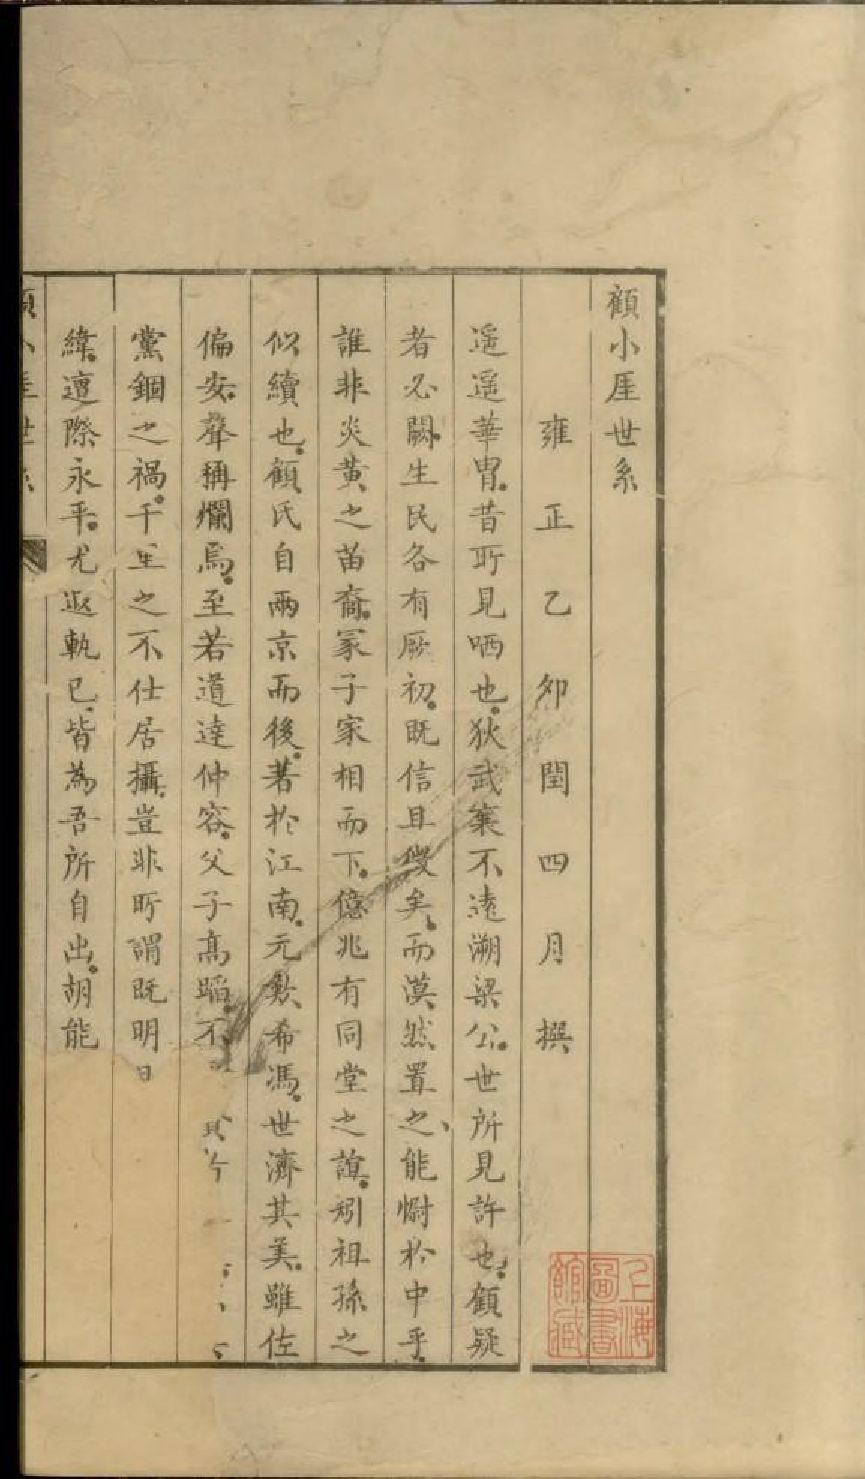 顧小厓世系
雍正乙卯閏四月撰
遥遥華胄。昔所見哂也。狄武襄不遠溯梁公。世所見許也。顧疑
者必闕。生民各有厥初。既信且徵矣。而漠然置之、能恝於中乎。
誰非炎黄之苗裔。冢子家相而下。億兆有同堂之誼。矧祖孫之
似續也。顧氏自兩京而後。著於江南。元歎希馮。世濟其美。雖佐
偏安。聲稱爛焉。至若道達仲容。父子髙蹈。不
黨錮之禍。千里之不仕居攝。豈非所謂既明
緯。遭際永平。尤遐軌已。皆為吾所自出。胡能
顧小厓世系
上海圖書館藏